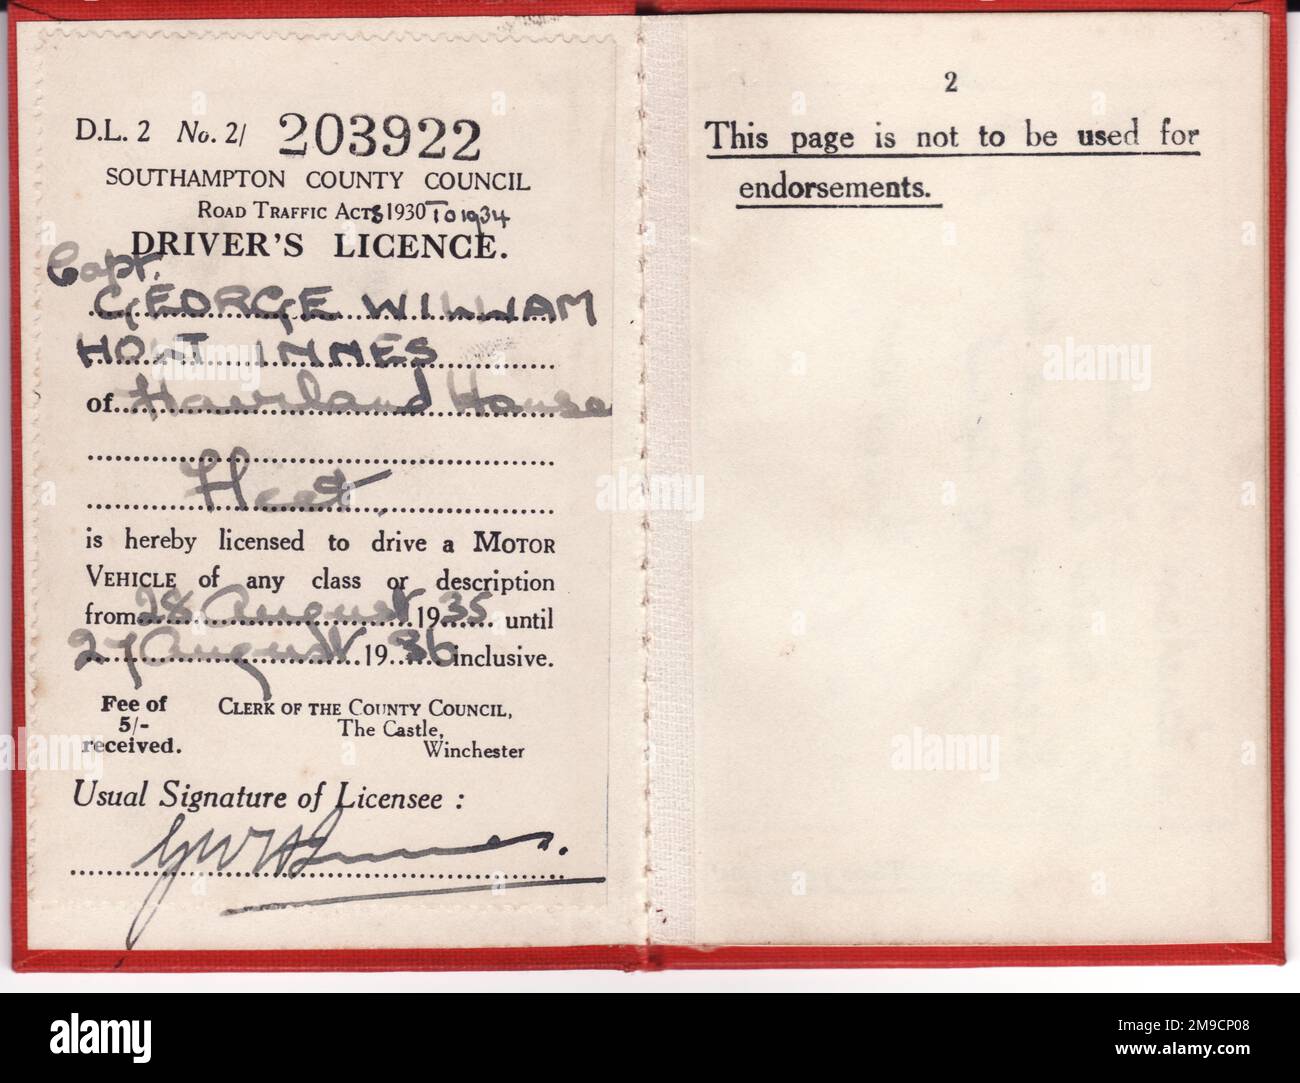 D.L. 2 No. 2/ 203922
SOUTHAMPTON COUNTY COUNCIL
ROAD TRAFFIC ACTS 1930 TO 1934
DRIVER'S LICENCE.
Capt.
GEORGE WILLIAM
HOLT INNES
of Haviland House
Fleet.
is hereby licensed to drive a MOTOR
VEHICLE of any class or description
from 28 August 1935 until
27 August 1936 inclusive.
Fee of
5/-
received.
CLERK OF THE COUNTY COUNCIL,
The Castle,
Winchester
Usual Signature of Licensee :
GWH Innes.
2
This page is not to be used for
endorsements.
alamy
alamy
Image ID: 2M9CP08
www.alamy.com